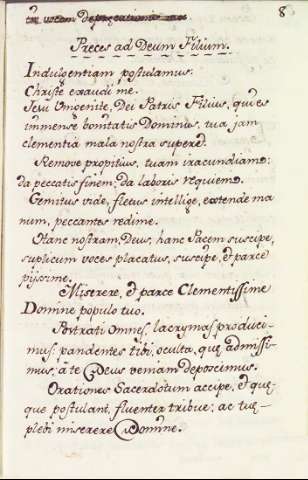 8
tu vocem deprecationis
Preces ad Deum Filium.
Indulgentiam postulamus:
Christe exaudi me.
Jesu Unigenite, Dei Patris Filius, qui es
immensæ bonitatis Dominus, tua jam
clementia mala nostra supered.
Remove propitius, tuam iracundiam:
da peccatis finem; da laboris requiem.
Gemitus vide, fletus intellige, extende ma
num, peccantes redime.
Hanc nostram, Deus, hanc Pacem suscipe,
suplicum voces placatus, suscipe, et parce
pijssime.
Miserere, et parce Clementissime
Domine populo tuo.
Postrati Omnes, lacrymas produci-
mus: pandentes tibi, oculta, quæ admissi-
mus, à te Deus veniam deposcimus.
Orationes Sacerdotum accipe, et quæ-
que postulant, fluenter tribue; ac tuæ
plebi miserere Domine.